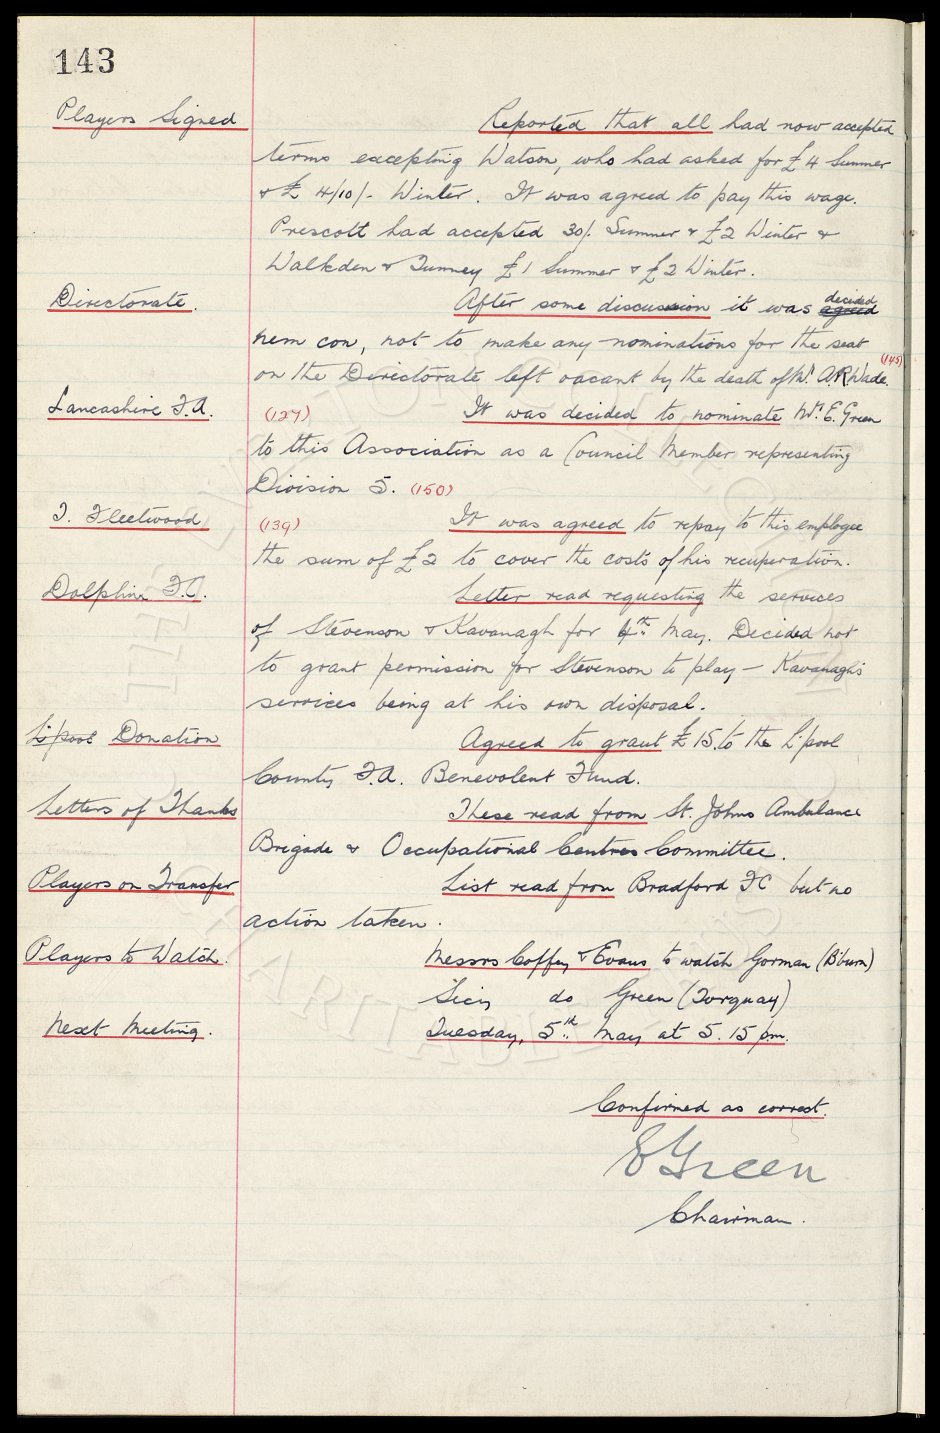 143
Players Signed Reported that all had now accepted
terms excepting Watson, who had asked for £4 Summer
& £4/10/- Winter. It was agreed to pay this wage.
Prescott had accepted 30/- Summer & £2 Winter &
Walkden & Tunney £1 Summer & £2 Winter.
Directorate. After some discussion it was agreed decided
nem con, not to make any nominations for the seat
on the Directorate left vacant by the death of Mr. A.R. Wade. (145)
Lancashire F.A. (127) It was decided to nominate Mr. E. Green
to this Association as a Council Member representing
Division 5. (150)
T. Fleetwood (139) It was agreed to repay to this employee
the sum of £2 to cover the costs of his recuperation.
Dolphin F.C. Letter read requesting the services
of Stevenson & Kavanagh for 4th May. Decided not
to grant permission for Stevenson to play – Kavanagh's
services being at his own disposal.
L'pool Donation Agreed to grant £15. to the L'pool
County F.A. Benevolent Fund.
Letters of Thanks These read from St. Johns Ambulance
Brigade & Occupational Centres Committee.
Players on Transfer List read from Bradford FC but no
action taken.
Players to Watch. Messrs Coffey & Evans to watch Gorman (B'burn)
do Green (Torquay)
Next Meeting. Tuesday, 5th May at 5.15 p.m.
Confirmed as correct.
E Green
Chairman.